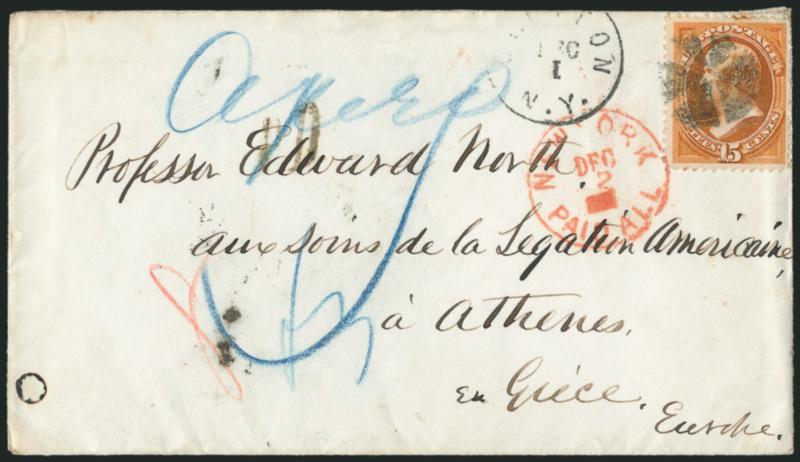 POSTAGE
FIFTEEN 15 CENTS
DEC
1
N.Y.
NEW YORK
DEC
2
PAID ALL
Professor Edward North.
aux soins de la Legation Americaine
à Athenes.
en Grèce.